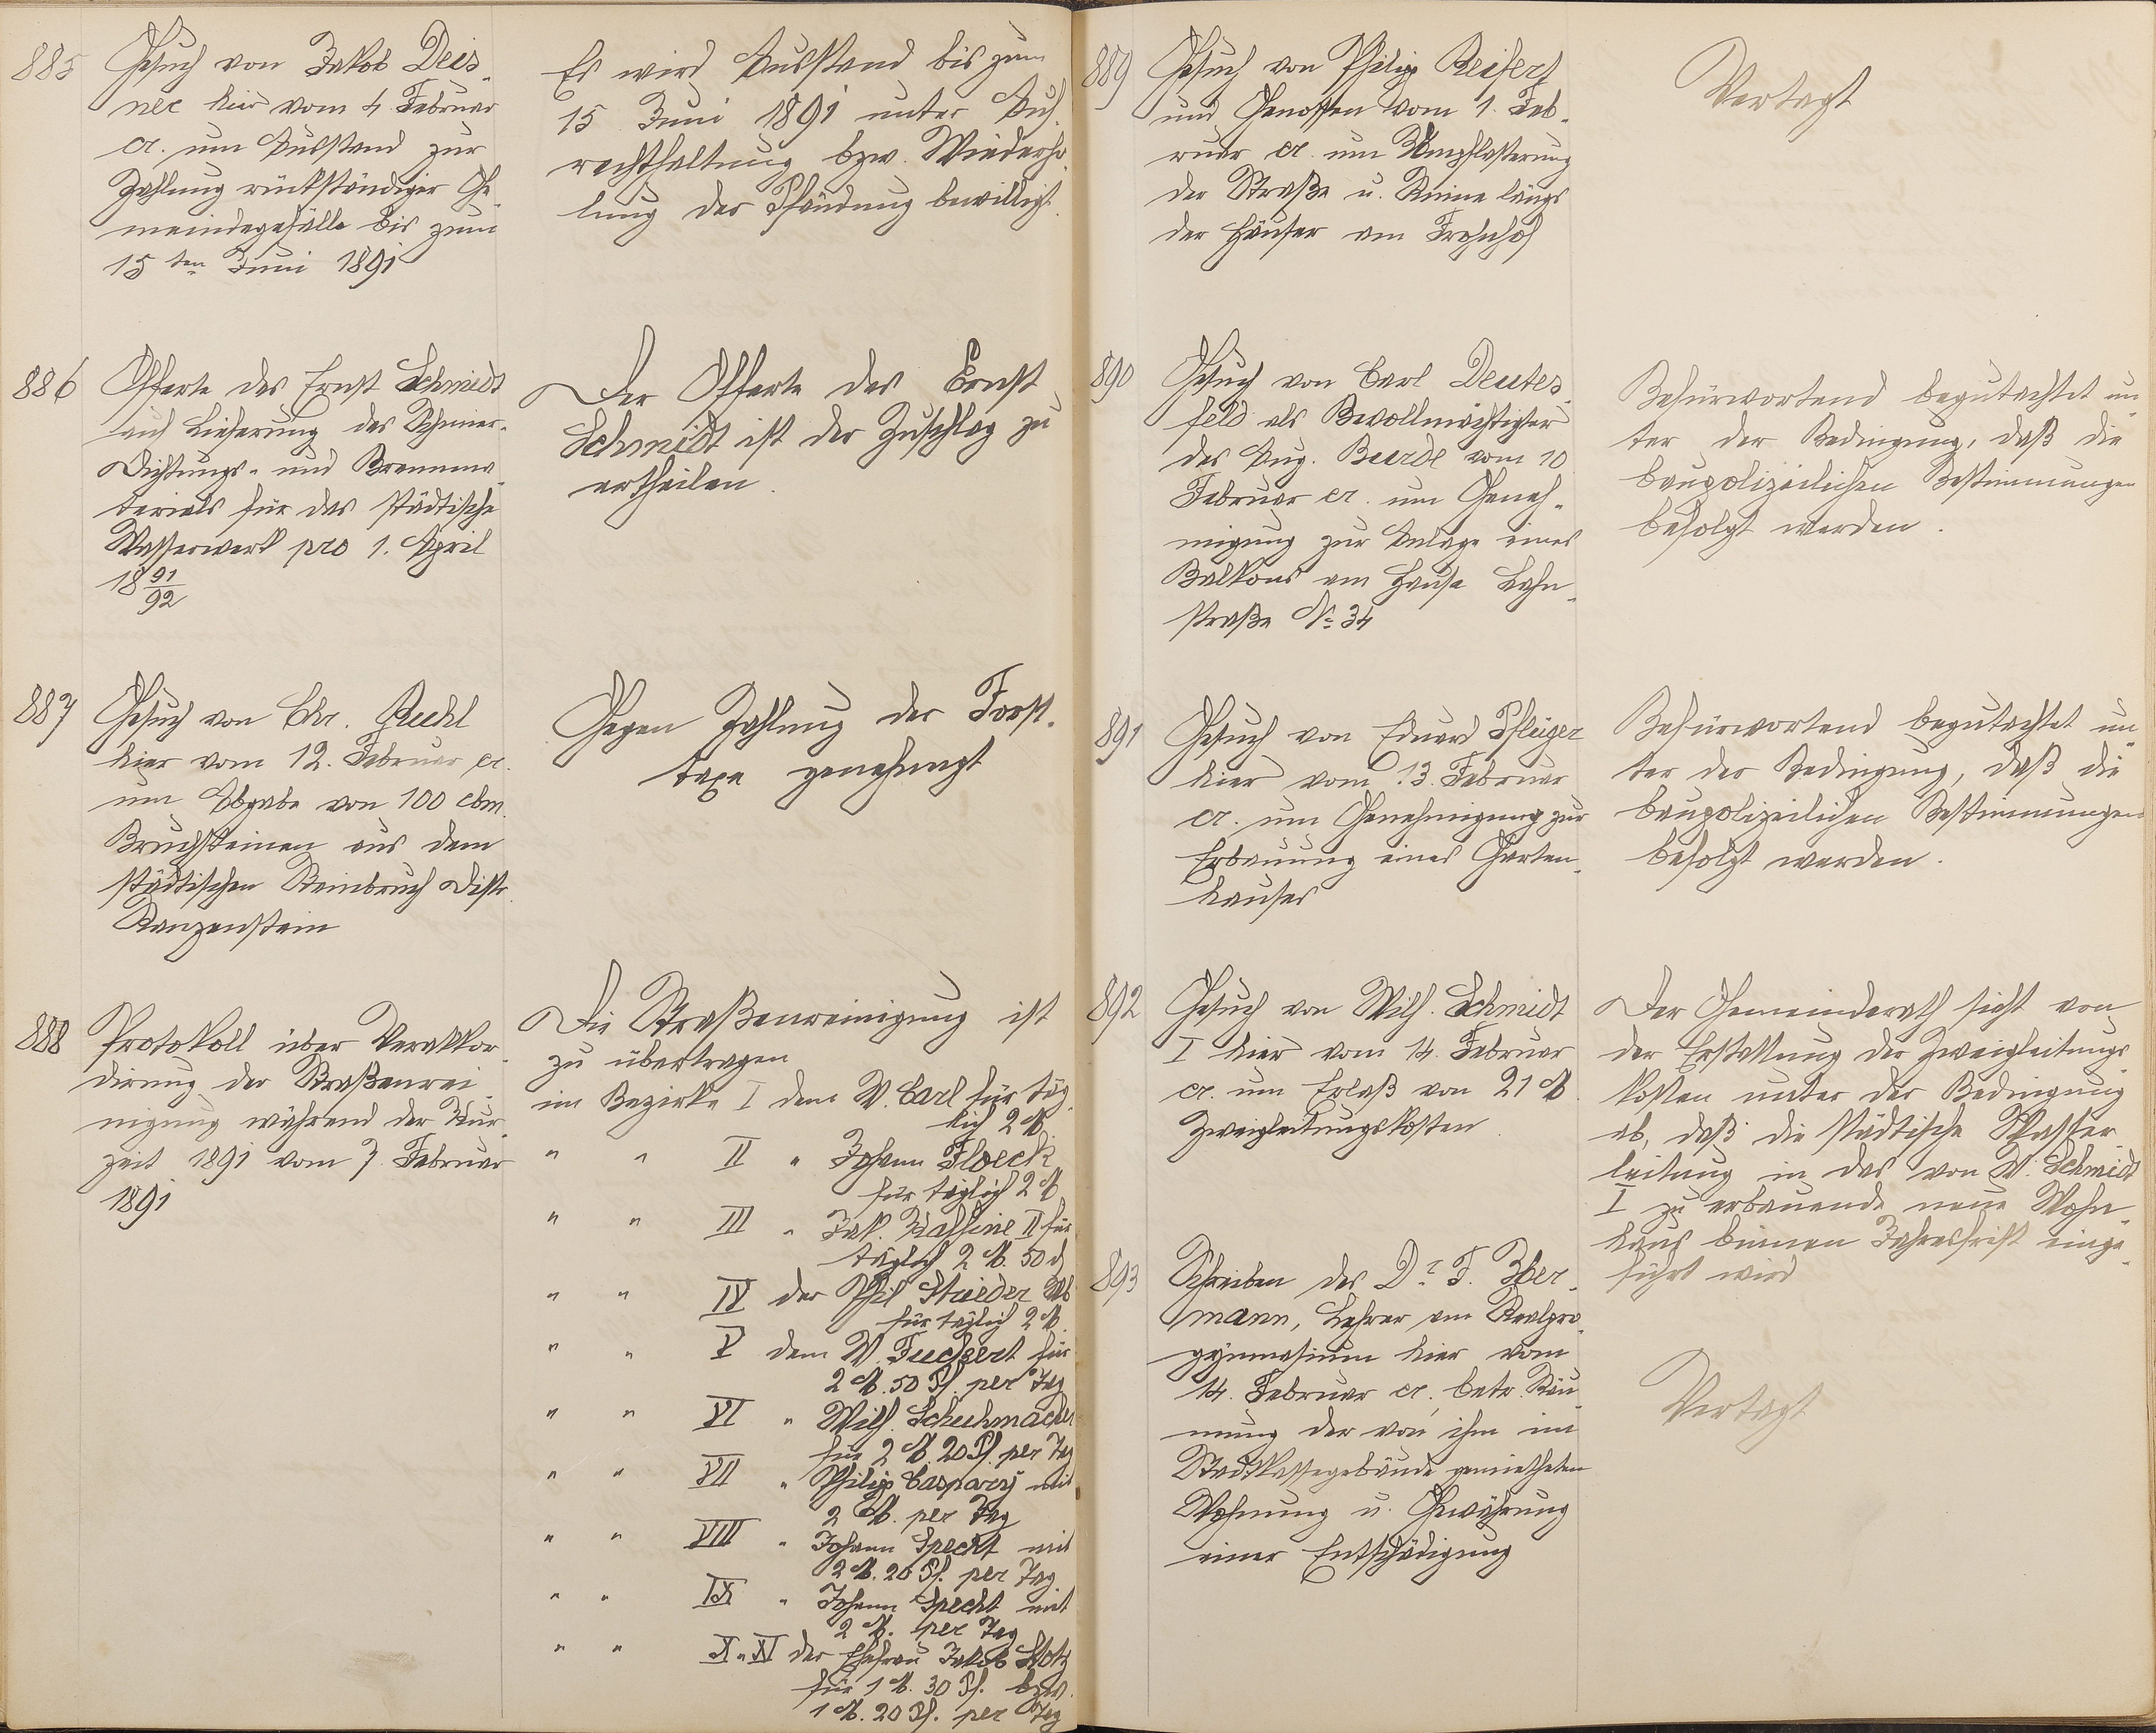 885
Gesuch von Jakob Deis-
ner hier vom 4 Februar
cr. um Ausstand zur
Zahlung rückständiger Ge-
meindegefälle bis zum
15ten Juni 1891
Es wird Ausstand bis zum
15 Juni 1891 unter Auf-
rechthaltung bzw. Wiederho-
lung der Pfändung bewilligt.
886
Offerte des Ernst Schmidt
auf Lieferung des Schmier-
Dichtungs- und Brennma-
terials für das städtische
Wasserwerk pro 1. April
18 91/92
Der Offerte des Ernst
Schmidt ist der Zuschlag zu
ertheilen.
887
Gesuch von Chr. Ruhl
hier vom 12. Februar cr.
um Abgabe von 100 cbm.
Bruchsteinen aus dem
städtischen Steinbruch Distr.
Kanzenstein
Gegen Zahlung der Forst-
taxe genehmigt
888
Protokoll über Verakkor-
dirung der Straßenrei-
nigung während der Kur-
zeit 1891 vom 7. Februar
1891
Die Straßenreinigung ist
zu übertragen
im Bezirke I dem W. Carl für täg-
lich 2 M.
" " II " Johann Floeck
für täglich 2 M.
" " III " Jak. II für
täglich 2 M. 50 d
" " IV der Phil Strieder Wb
für täglich 2 M.
" " V dem W. Fuckert für
2 M. 50 Pf. per Tag
" " VI " Wilh. Schuhmacher
für 2 M. 20 Pf. per Tag
" " VII " Philip Caspary mit
2 M. per Tag
" " VIII " Johann Specht mit
2 M. 20 Pf. per Tag
" " IX " Johann Specht mit
2 M. per Tag
" " X " XI der Ehefrau Jakob Stotz
für 1 M. 30 Pf. bzw.
1 M. 20 Pf. per Tag
889
Gesuch von Philip Reifert
und Genossen vom 1. Feb-
ruar cr. um Umpflasterung
der Straße u. Rinne längs
der Häuser am Frohnhof
Vertagt
890
Gesuch von Carl Deutes-
feld als Bevollmächtigter
des Aug. Burde vom 10
Februar cr. um Geneh-
migung zur Anlage eines
Balkons am Hause Lahn-
straße No 34
Befürwortend begutachtet un-
ter der Bedingung, daß die
baupolizeilichen Bestimmungen
befolgt werden.
891
Gesuch von Eduard Pflüger
hier vom 13. Februar
cr. um Genehmigung zur
Erbauung eines Garten-
hauses
Befürwortend begutachtet un-
ter der Bedingung, daß die
baupolizeilichen Bestimmungen
befolgt werden.
892
Gesuch von Wilh. Schmidt
I hier vom 14. Februar
cr. um Erlaß von 21 M.
Zweigleitungskosten.
Der Gemeinderath sieht von
der Erstattung der Zweigleitungs-
kosten unter der Bedingung
ab, daß die städtische Wasser-
leitung in das von W. Schmidt
I zu erbauende neue Wohn-
haus binnen Jahresfrist einge-
führt wird
893
Schreiben des Dr. F.
mann, Lehrer am Realpro-
gymnasium hier vom
14. Februar cr., betr. Räu-
mung der von ihm im
Stadtkassegebäude gemietheten
Wohnung u. Gewährung
einer Entschädigung
Vertagt